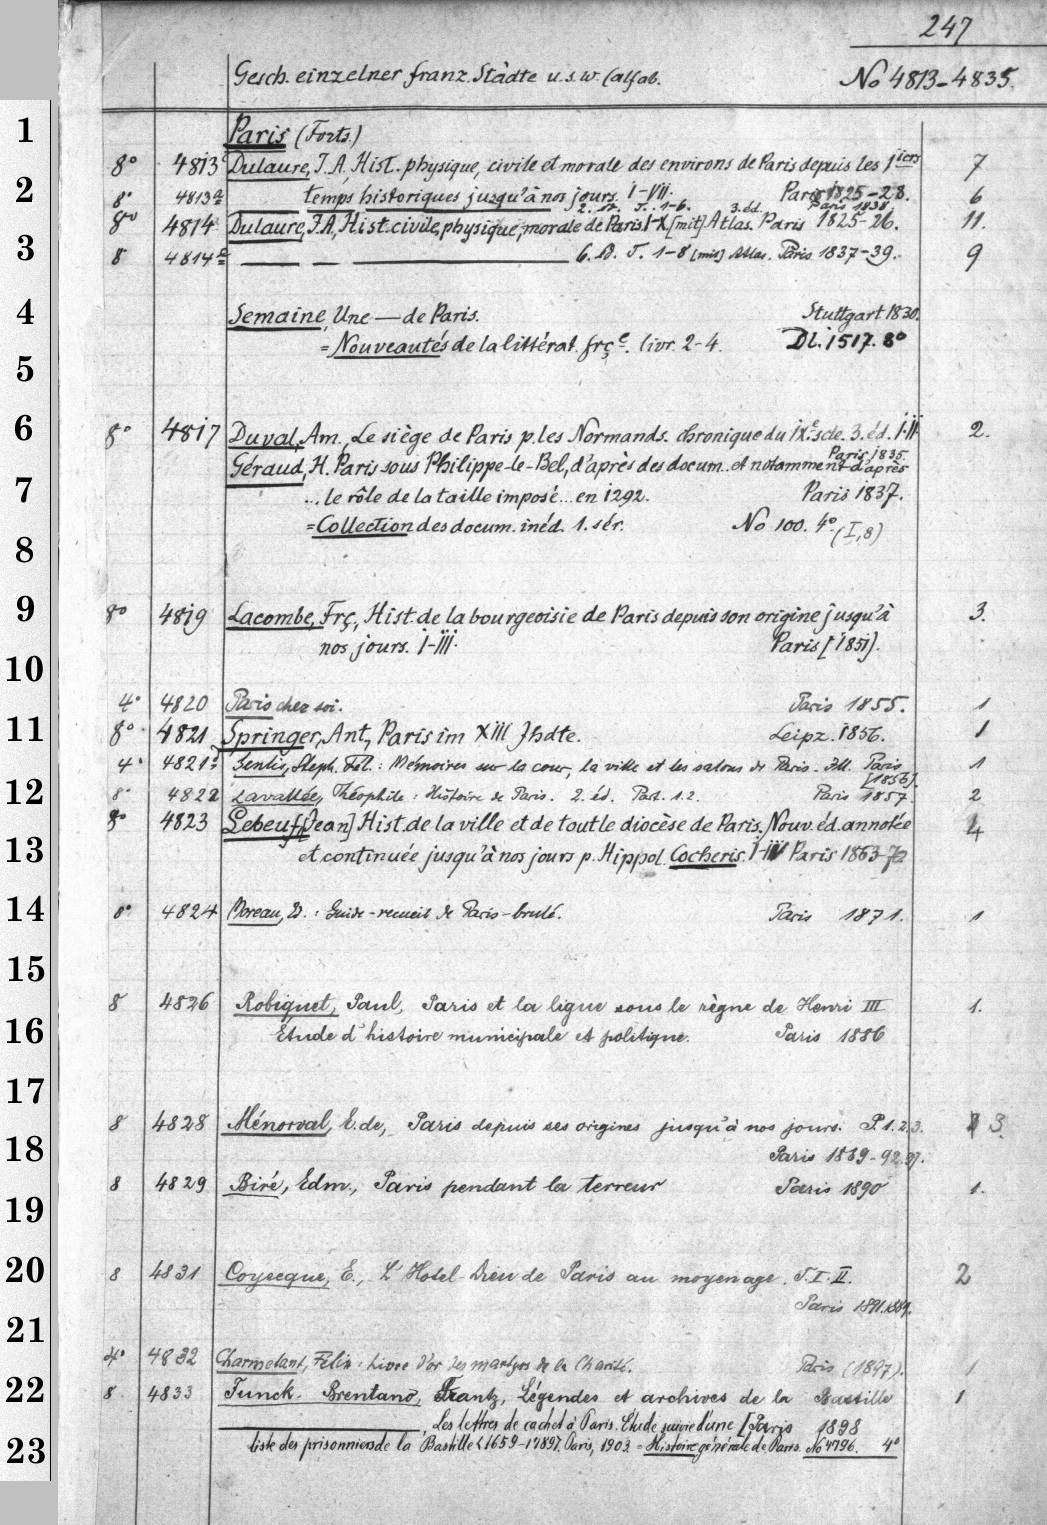 247
Gesch. einzelner franz. Städte u.s.w. (alfab. No 4813-4835.
1
Paris (Forts.)
8° 4813 Dulaure, J.A., Hist. physique, civile et morale des environs de Paris depuis les 1iers 7
2
8° 4813a temps historiques jusqu'à nos jours. I-VII. Paris 1825-28. 6
2. éd. T. 1-6. Paris 1838.
8vo 4814 Dulaure, J.A., Hist. civile, physique, morale de Paris. I-X [mit] Atlas. 3. éd. Paris 1825-26. 11.
3
8 4814a 6. éd. T. 1-8 [mit] Atlas. Paris 1837-39. 9
4
Semaine, Une — de Paris. Stuttgart 1830.
= Nouveautés de la littérat. frçe. livr. 2-4. Dl. 1517. 8°
5
6
8° 4817 Duval, Am., Le siège de Paris p. les Normands. chronique du IXe scle. 3. éd. I-II 2.
Paris 1835.
Géraud, H. Paris sous Philippe-le-Bel, d'après des docum. et notamment d'après
7
... le rôle de la taille imposé ... en 1292. Paris 1837.
= Collection des docum. inéd. 1. sér. No 100. 4° (I,8)
8
9
8° 4819 Lacombe, Frç, Hist. de la bourgeoisie de Paris depuis son origine jusqu'à 3.
nos jours. I-III. Paris [1851].
10
4° 4820 Paris chez soi. Paris 1855. 1
11
8° 4821 Springer, Ant, Paris im XIII Jhdte. Leipz. 1856. 1
12
4° 4821a Genlis, Steph. Fél.: Mémoires sur la cour, la ville et les salons de Paris. Ill. Paris [1856]. 1
8° 4822 Lavallée, Théophile: Histoire de Paris. 2. éd. Part. 1.2. Paris 1857. 2
8° 4823 Lebeuf, [Jean] Hist. de la ville et de tout le diocèse de Paris. Nouv. éd. annotée 4
13
et continuée jusqu'à nos jours p. Hippol. Cocheris. I-IV Paris 1863-70
14
8° 4824 Moreau, D.: Guide-recueil de Paris-brulé. Paris 1871. 1
15
8 4826 Robiquet, Paul, Paris et la ligue sous le règne de Henri III 1.
16
Etude d'histoire municipale et politique. Paris 1886
17
8 4828 Ménorval, E. de, Paris depuis ses origines jusqu'à nos jours. P. 1.2.3. 3.
18
Paris 1889-92.97.
8 4829 Biré, Edm., Paris pendant la terreur Paris 1890 1.
19
20
8 4831 Coyecque, E., L'Hotel-Dieu de Paris au moyen age. T. I. II. 2
Paris 1891.1889.
21
4° 4832 Charmetant, Félix: Livre d'or des martyrs de la Charité. Paris (1897). 1
22
8 4833 Funck-Brentano, Frantz, Légendes et archives de la Bastille 1
Les lettres de cachet à Paris. Etude suivie d'une [Paris 1898
23
liste des prisonniers de la Bastille (1659-1789). Paris, 1903. = Histoire générale de Paris. No 4796. 4°